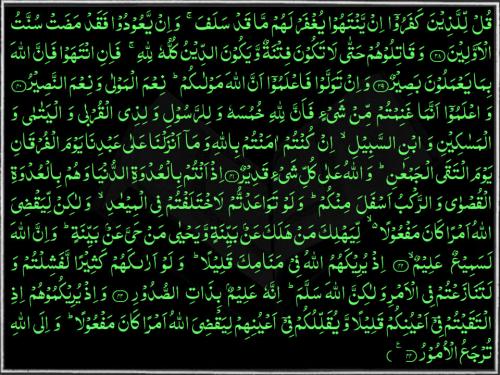 قُلْ لِّلَّذِيْنَ كَفَرُوْۤا اِنْ يَّنْتَهُوْا يُغْفَرْ لَهُمْ مَّا قَدْ سَلَفَ ۚ وَ اِنْ يَّعُوْدُوْا فَقَدْ مَضَتْ سُنَّتُ
الْاَوَّلِيْنَ ﴿۳۸﴾ وَ قَاتِلُوْهُمْ حَتّٰى لَا تَكُوْنَ فِتْنَةٌ وَّ يَكُوْنَ الدِّيْنُ كُلُّهٗ لِلّٰهِ ۚ فَاِنِ انْتَهَوْا فَاِنَّ اللّٰهَ
بِمَا يَعْمَلُوْنَ بَصِيْرٌ ﴿۳۹﴾ وَ اِنْ تَوَلَّوْا فَاعْلَمُوْۤا اَنَّ اللّٰهَ مَوْلٰىكُمْ ؕ نِعْمَ الْمَوْلٰى وَ نِعْمَ النَّصِيْرُ ﴿۴۰﴾
وَ اعْلَمُوْۤا اَنَّمَا غَنِمْتُمْ مِّنْ شَيْءٍ فَاَنَّ لِلّٰهِ خُمُسَهٗ وَ لِلرَّسُوْلِ وَ لِذِي الْقُرْبٰى وَ الْيَتٰمٰى وَ
الْمَسٰكِيْنِ وَ ابْنِ السَّبِيْلِ ۙ اِنْ كُنْتُمْ اٰمَنْتُمْ بِاللّٰهِ وَ مَاۤ اَنْزَلْنَا عَلٰى عَبْدِنَا يَوْمَ الْفُرْقَانِ
يَوْمَ الْتَقَى الْجَمْعٰنِ ؕ وَ اللّٰهُ عَلٰى كُلِّ شَيْءٍ قَدِيْرٌ ﴿۴۱﴾ اِذْ اَنْتُمْ بِالْعُدْوَةِ الدُّنْيَا وَ هُمْ بِالْعُدْوَةِ
الْقُصْوٰى وَ الرَّكْبُ اَسْفَلَ مِنْكُمْ ؕ وَ لَوْ تَوَاعَدْتُّمْ لَاخْتَلَفْتُمْ فِي الْمِيْعٰدِ ۙ وَ لٰكِنْ لِّيَقْضِيَ
اللّٰهُ اَمْرًا كَانَ مَفْعُوْلًا ۙ لِّيَهْلِكَ مَنْ هَلَكَ عَنْۢ بَيِّنَةٍ وَّ يَحْيٰى مَنْ حَيَّ عَنْۢ بَيِّنَةٍ ؕ وَ اِنَّ اللّٰهَ
لَسَمِيْعٌ عَلِيْمٌ ﴿۴۲﴾ اِذْ يُرِيْكَهُمُ اللّٰهُ فِيْ مَنَامِكَ قَلِيْلًا ؕ وَ لَوْ اَرٰىكَهُمْ كَثِيْرًا لَّفَشِلْتُمْ وَ
لَتَنَازَعْتُمْ فِي الْاَمْرِ وَ لٰكِنَّ اللّٰهَ سَلَّمَ ؕ اِنَّهٗ عَلِيْمٌۢ بِذَاتِ الصُّدُوْرِ ﴿۴۳﴾ وَ اِذْ يُرِيْكُمُوْهُمْ اِذِ
الْتَقَيْتُمْ فِيْۤ اَعْيُنِكُمْ قَلِيْلًا وَّ يُقَلِّلُكُمْ فِيْۤ اَعْيُنِهِمْ لِيَقْضِيَ اللّٰهُ اَمْرًا كَانَ مَفْعُوْلًا ؕ وَ اِلَى اللّٰهِ
تُرْجَعُ الْاُمُوْرُ ﴿۴۴﴾